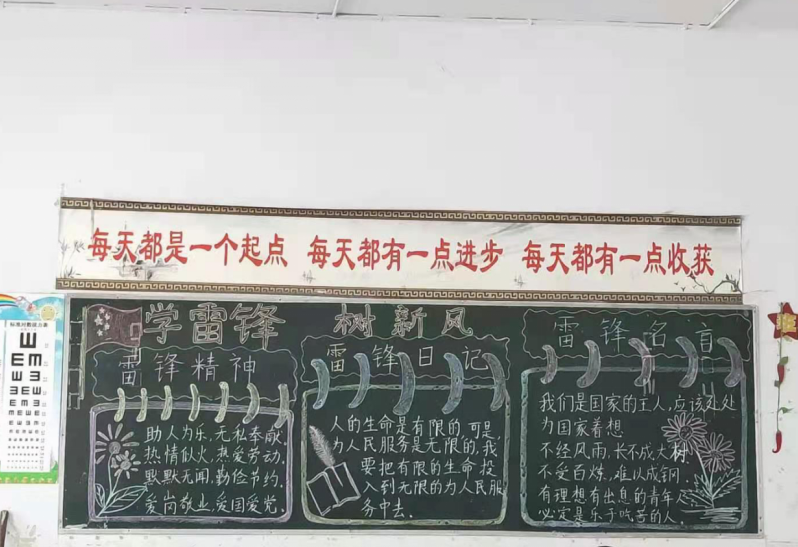 每天都是一个起点 每天都有一点进步 每天都有一点收获
学雷锋 树新风
雷锋精神
助人为乐,无私奉献,
热情似火,热爱劳动,
默默无闻,勤俭节约,
爱岗敬业,爱国爱党。
雷锋日记
人的生命是有限的,可是,
为人民服务是无限的,我
要把有限的生命,投
入到无限的为人民服
务中去。
雷锋名言
我们是国家的主人,应该处处
为国家着想
不经风雨,长不成大树,
不受百炼,难以成钢。
有理想有出息的青年人
必定是乐于吃苦的人。
标准对数视力表